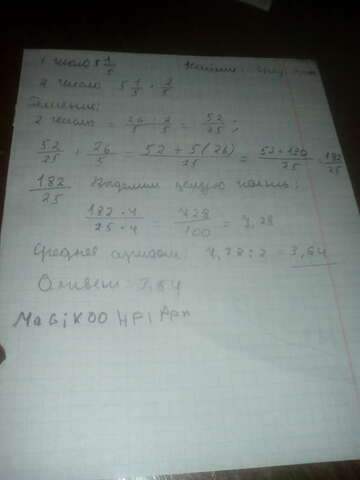 1 число 5 1/5 Найти: сред. ариф.
2 число 5 1/5 · 2/5
Решение:
2 число = 26 · 2/5 · 5 = 52/25;
52/25 + 26/5 = 52 + 5(26)/25 = 52 + 130/25 = 182/25
182/25 Выделим целую часть:
182 · 4/25 · 4 = 728/100 = 7,28
Среднее арифм.: 7,28 : 2 = 3,64
Ответ: 3,64